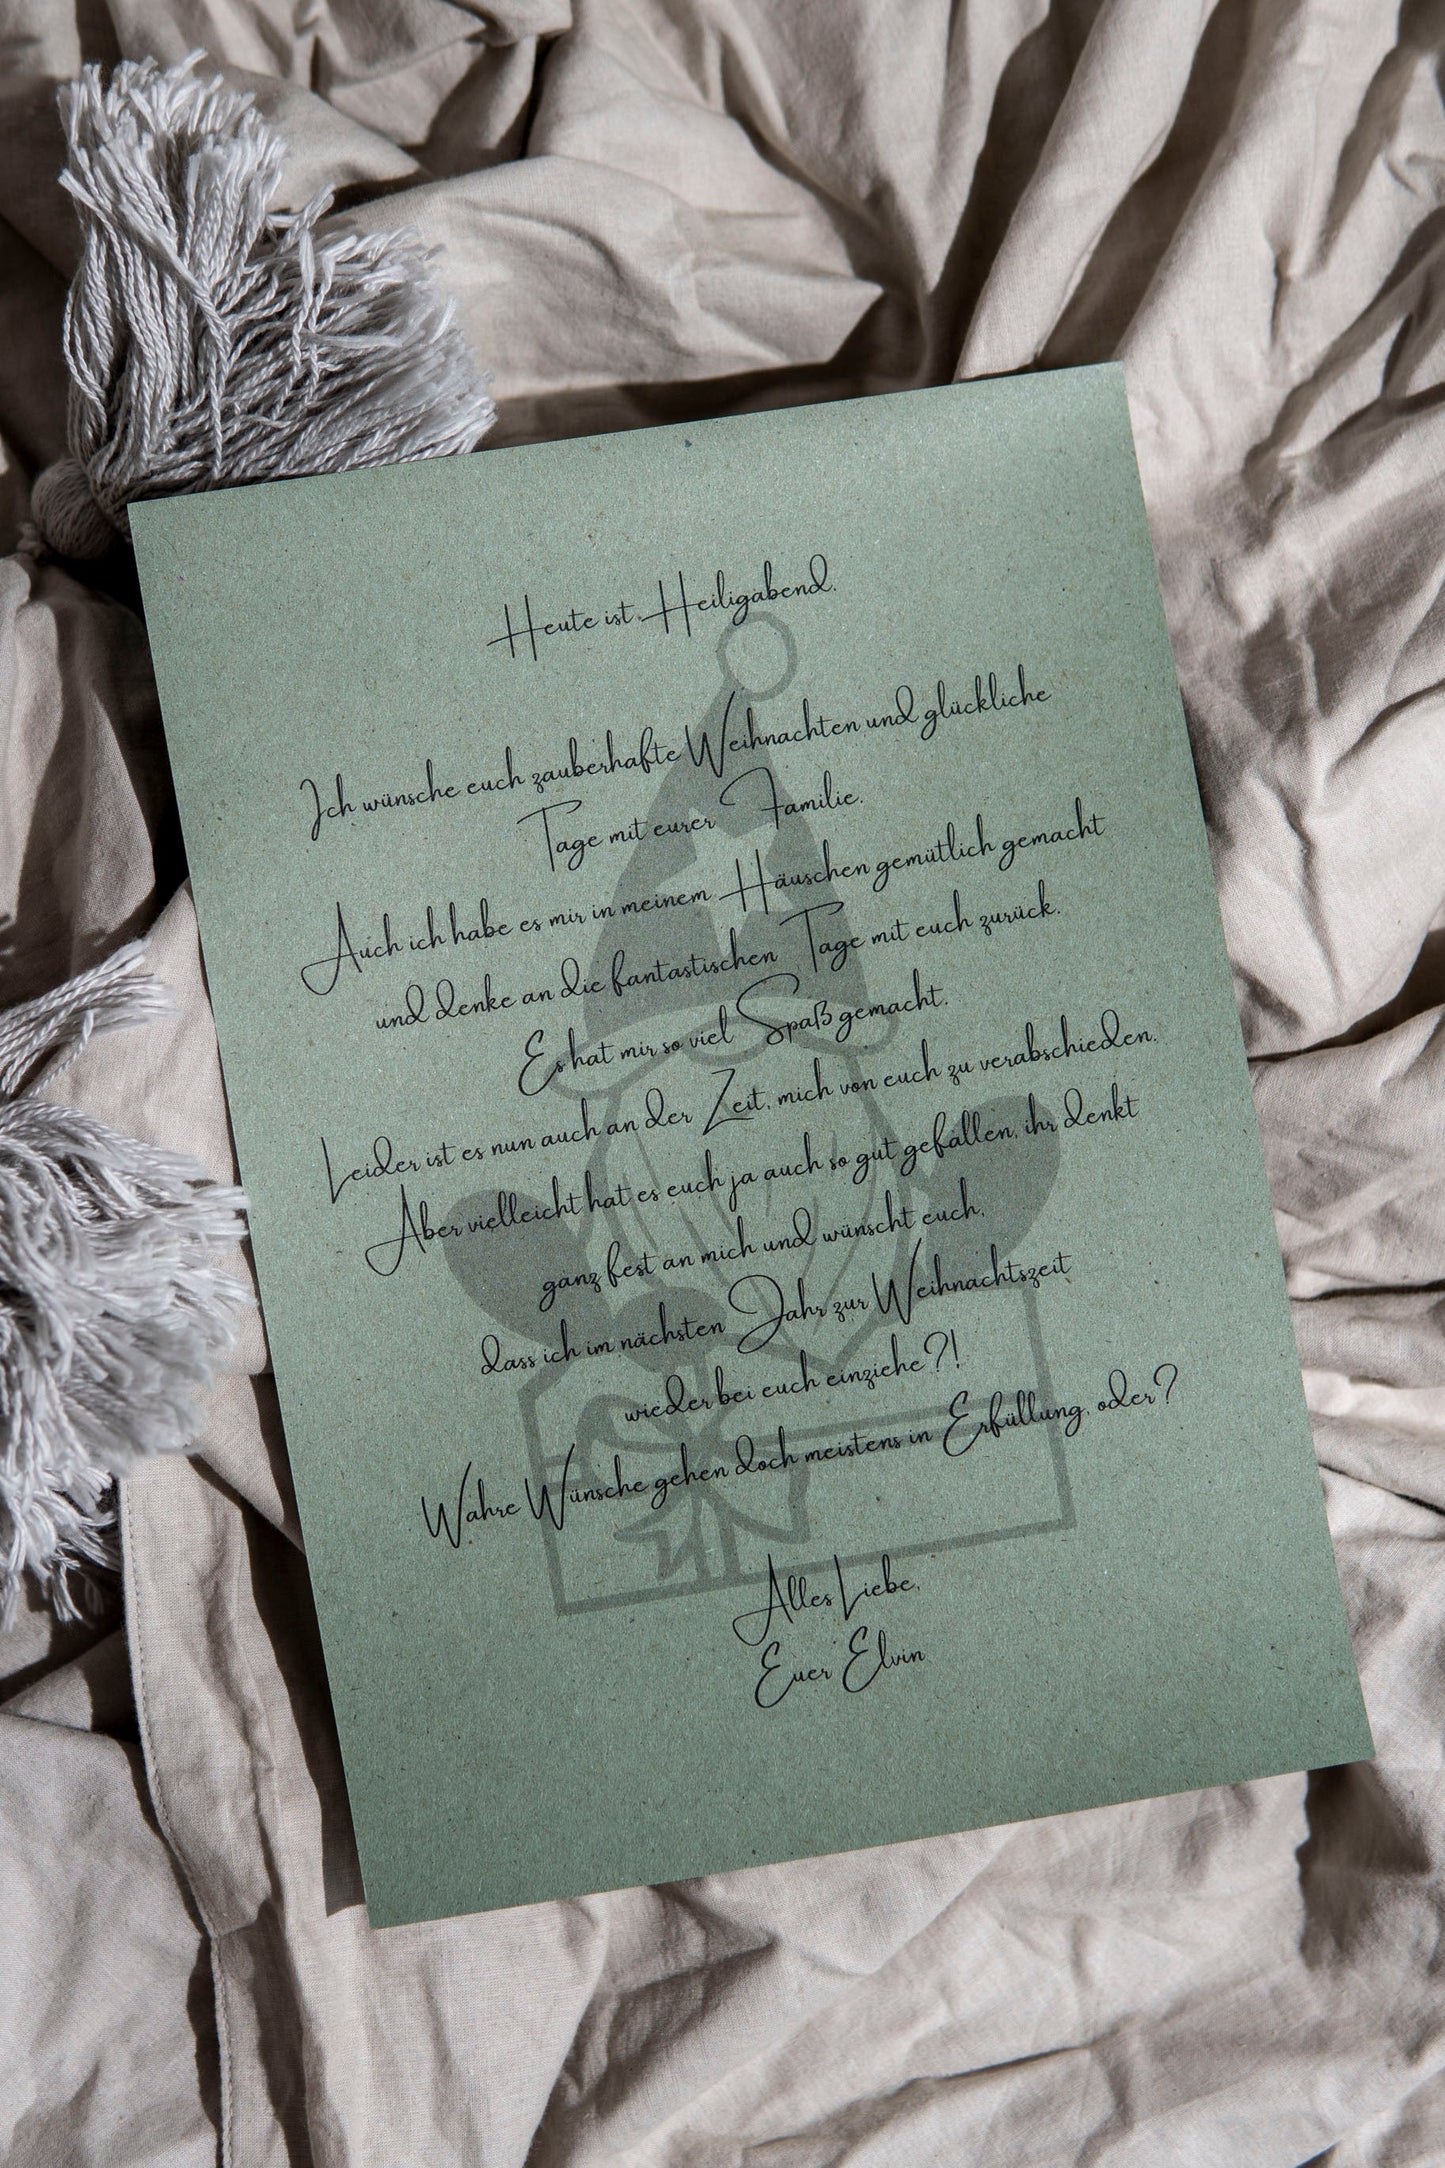 Heute ist Heiligabend.
Ich wünsche euch zauberhafte Weihnachten und glückliche
Tage mit eurer Familie.
Auch ich habe es mir in meinem Häuschen gemütlich gemacht
und denke an die fantastischen Tage mit euch zurück.
Es hat mir so viel Spaß gemacht.
Leider ist es nun auch an der Zeit, mich von euch zu verabschieden.
Aber vielleicht hat es euch ja auch so gut gefallen, ihr denkt
ganz fest an mich und wünscht euch,
dass ich im nächsten Jahr zur Weihnachtszeit
wieder bei euch einziehe?!
Wahre Wünsche gehen doch meistens in Erfüllung, oder?
Alles Liebe,
Euer Elvin